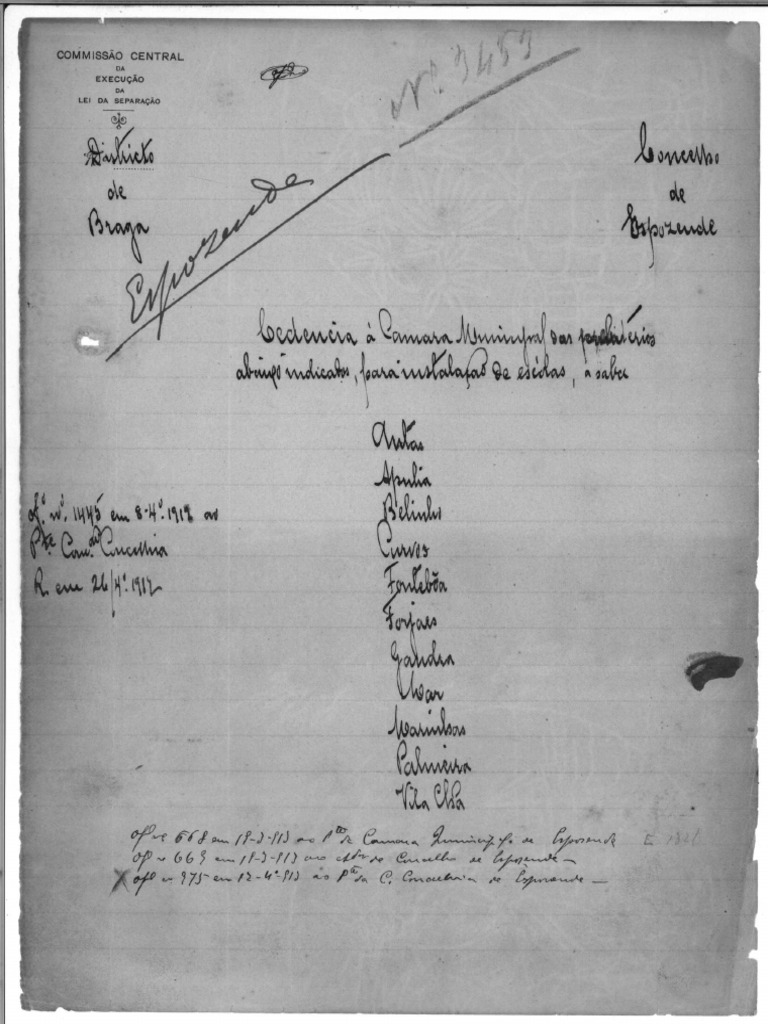 COMMISSÃO CENTRAL
DA
EXECUÇÃO
DA
LEI DA SEPARAÇÃO
Nº. 3453
Districto
de
Braga
Concelho
de
Espozende
Espozende
Cedencia á Camara Municipal das presbitérios
abaixo indicados, para instalação de escólas, a saber
Antas
Apulia
Belinho
Curvos
Fonteboa
Forjaes
Gandra
Mar
Marinhas
Palmeira
Vila Chã
Of.º nº. 1445 em 8-4º.1912 ao
Pte. Com. Concelhia
R. em 26/4º.1912
Of º 668 em 19-3-913 ao Pte da Camara Municipal de Esposende
Of º 669 em 19-3-913 ao Ador do Concelho de Esposende —
X Of º 975 em 12-4º-913 ao Pte da C. Concelhia de Esposende —